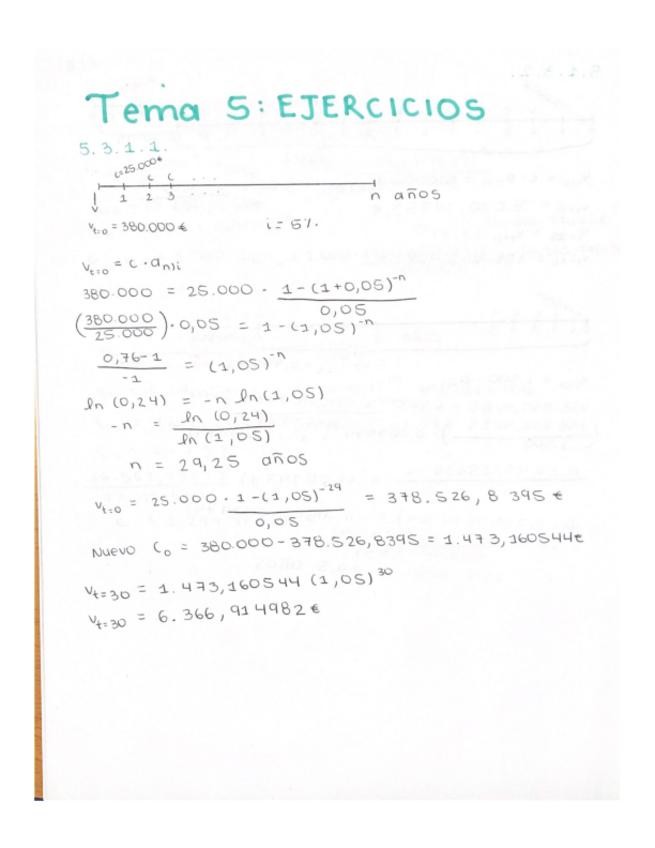 Tema 5: EJERCICIOS
5.3.1.1.
c=25.000€
c c ...
1 2 3 ... n años
V_{t=0} = 380.000 € i = 5%.
V_{t=0} = c · a_{n⌉i}
380.000 = 25.000 · \frac{1-(1+0,05)^{-n}}{0,05}
(\frac{380.000}{25.000}) · 0,05 = 1-(1,05)^{-n}
\frac{0,76-1}{-1} = (1,05)^{-n}
ln (0,24) = -n ln(1,05)
-n = \frac{ln (0,24)}{ln (1,05)}
n = 29,25 años
V_{t=0} = 25.000 · \frac{1-(1,05)^{-29}}{0,05} = 378.526,8395 €
Nuevo C_0 = 380.000-378.526,8395 = 1.473,160544€
V_{t=30} = 1.473,160544 (1,05)^{30}
V_{t=30} = 6.366,914982 €